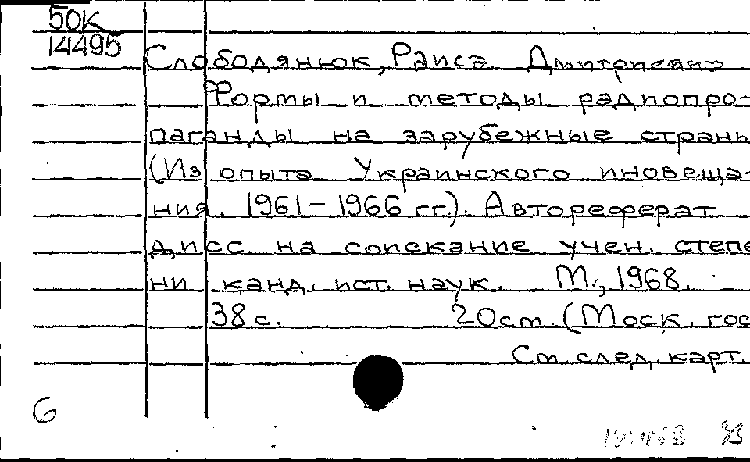 50К
14495
Слободянюк, Раиса Дмитриевна
Формы и методы радиопро-
паганды на зарубежные страны
(Из опыта Украинского иновеща-
ния. 1961-1966 гг.). Автореферат
дисс на соискание учен. степе
ни канд. ист. наук. М., 1968.
38 с. 20 см. (Моск. гос
См. след. карт.
6